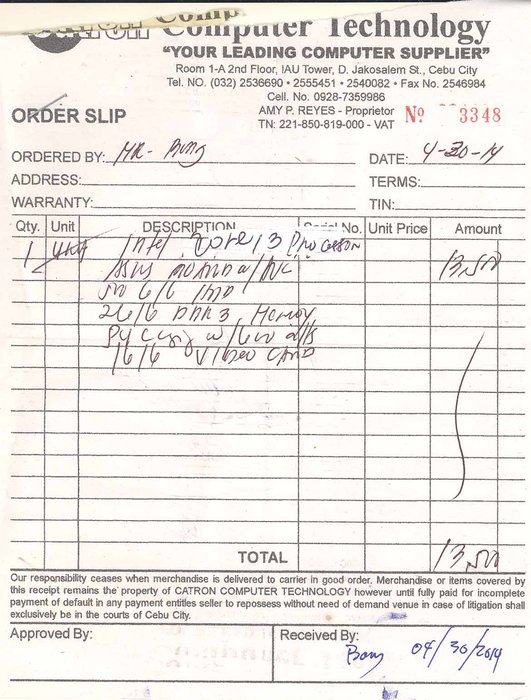 Comp
CATRON Computer Technology
"YOUR LEADING COMPUTER SUPPLIER"
Room 1-A 2nd Floor, IAU Tower, D. Jakosalem St., Cebu City
Tel. NO. (032) 2536690 • 2555451 • 2540082 • Fax No. 2546984
Cell. No. 0928-7359986
AMY P. REYES - Proprietor Nº 3348
TN: 221-850-819-000 - VAT
ORDER SLIP
ORDERED BY: MR- Bong DATE: 4-30-14
ADDRESS: TERMS:
WARRANTY: TIN:
Qty. Unit DESCRIPTION Serial No. Unit Price Amount
1 Unit Intel Core i3 Processor
13,500
HDD
2G/6 DDR3 Memory
w/600
1G/6 Video CARD
TOTAL 13,500
Our responsibility ceases when merchandise is delivered to carrier in good order. Merchandise or items covered by
this receipt remains the property of CATRON COMPUTER TECHNOLOGY however until fully paid for incomplete
payment of default in any payment entities seller to repossess without need of demand venue in case of litigation shall
exclusively be in the courts of Cebu City.
Approved By: Received By:
Bong 04/30/2014